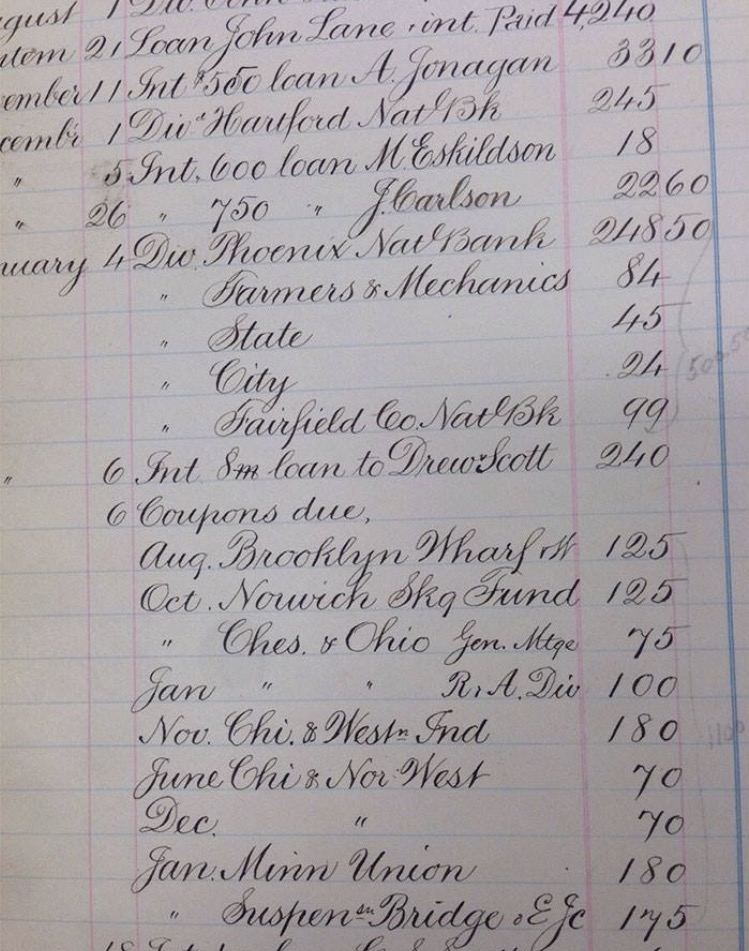 gust 1 Div. Conn
tem 21 Loan John Lane & int. Paid 4,240
ember 11 Int $550 loan A. Jonagan 33 10
cembr 1 Div Hartford Natl Bk 245
" 5 Int. 600 loan M. Eskildson 18
" 26 " 750 " J. Carlson 22 60
nuary 4 Div Phoenix Natl Bank 248 50
" Farmers & Mechanics 84
" State 45
" City 24
" Fairfield Co. Natl Bk 99
" 6 Int 8m loan to Drew & Scott 240
6 Coupons due,
Aug. Brooklyn Wharf & W 125
Oct. Norwich Skg Fund 125
" Ches. & Ohio Gen. Mtge 75
Jan " " R. & A. Div 100
Nov. Chi. & Westn Ind 180
June Chi & Nor. West 70
Dec. " 70
Jan. Minn Union 180
" Suspensn Bridge & E Jc 175
18